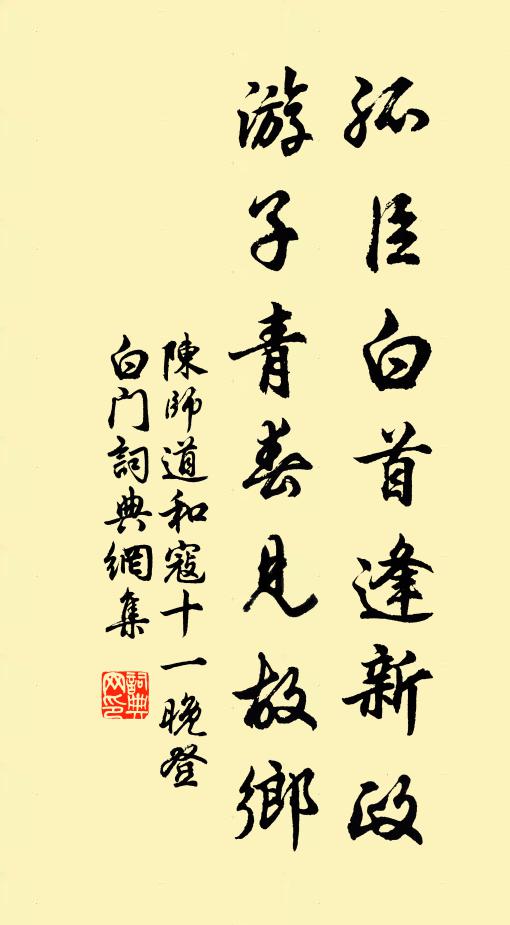 孤臣白首逢新政
游子青春見故鄉
陳師道和寇十一晚登
白門詞典網集
詞典網印